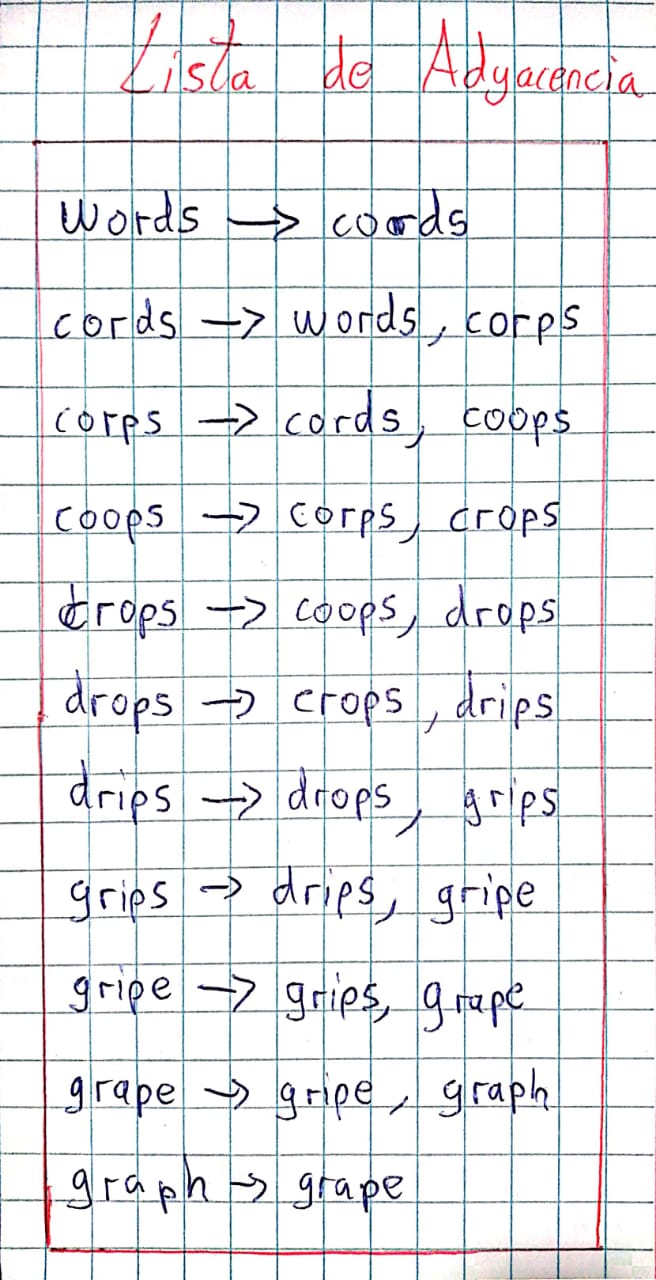 Lista de Adyacencia
words → cords
cords → words, corps
corps → cords, coops
coops → corps, crops
crops → coops, drops
drops → crops, drips
drips → drops, grips
grips → drips, gripe
gripe → grips, grape
grape → gripe, graph
graph → grape